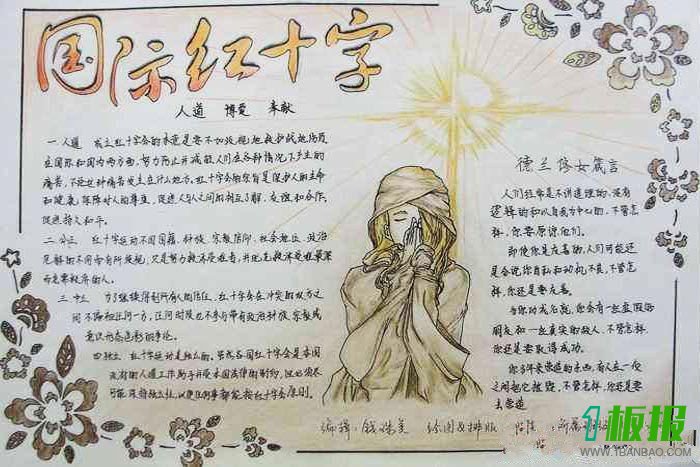 国际红十字
人道 博爱 奉献
一.人道 成立红十字会的本意是要不加歧视地救护战地伤员
在国际和国内两方面,努力防止并减轻人们在各种情况下产生的
痛苦,不论这种痛苦发生在什么地方。红十字会的宗旨是保护人的生命
和健康,保障对人的尊重,促进人与人之间的相互了解、友谊和合作,
促进持久和平。
二.公正 红十字运动不因国籍、种族、宗教信仰、社会地位、政治
见解的不同而有所歧视,只是努力救济受难者,并优先救济受难最深
而急需救济的人。
三.中立 为了继续得到所有人的信任,红十字会在冲突的双方之
间不偏袒任何一方,任何时候也不参与带有政治种族、宗教或
意识形态色彩的争论。
四.独立 红十字运动是独立的。虽然各国红十字会是本国
政府的人道工作助手并受本国法律的制约,但必须尽
可能保持独立性,以便任何事都能按红十字会原则。
德兰修女箴言
人们经常是不讲道理的、没有
逻辑的和以自我为中心的,不管怎
样,你要原谅他们。
即使你是友善的,人们可能还
是会说你自私和动机不良,不管怎
样,你还是要友善。
当你功成名就,你会有一些虚假的
朋友和一些真实的敌人,不管怎样,
你还是要取得成功。
你多年来营造的东西,有人在一夜
之间把它摧毁,不管怎样,你还是要
去营造
编辑:钱姝美 绘图及排版
1板报
WWW.1BANBAO.COM